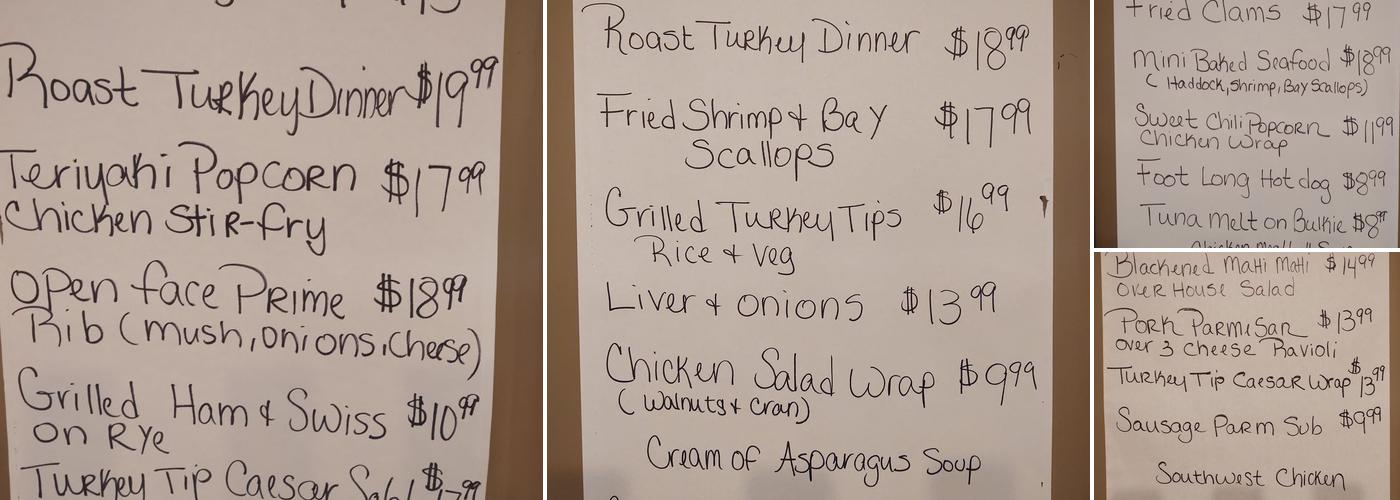 Roast Turkey Dinner $19.99
Teriyaki Popcorn $17.99
Chicken Stir-fry
Open face Prime $18.99
Rib (mush, onions, cheese)
Grilled Ham & Swiss $10.99
on Rye
Turkey Tip Caesar
Roast Turkey Dinner $18.99
Fried Shrimp & Bay $17.99
Scallops
Grilled Turkey Tips $16.99
Rice & Veg
Liver & onions $13.99
Chicken Salad Wrap $9.99
(Walnuts & Cran)
Cream of Asparagus Soup
Fried Clams $17.99
Mini Baked Seafood $18.99
(Haddock, Shrimp, Bay Scallops)
Sweet Chili Popcorn $11.99
Chicken Wrap
Foot Long Hot dog $8.99
Tuna melt on Bulkie $8.99
Blackened Mahi Mahi $14.99
over House Salad
Pork Parmisan $13.99
over 3 cheese Ravioli
Turkey Tip Caesar Wrap $13.99
Sausage Parm Sub $9.99
Southwest Chicken